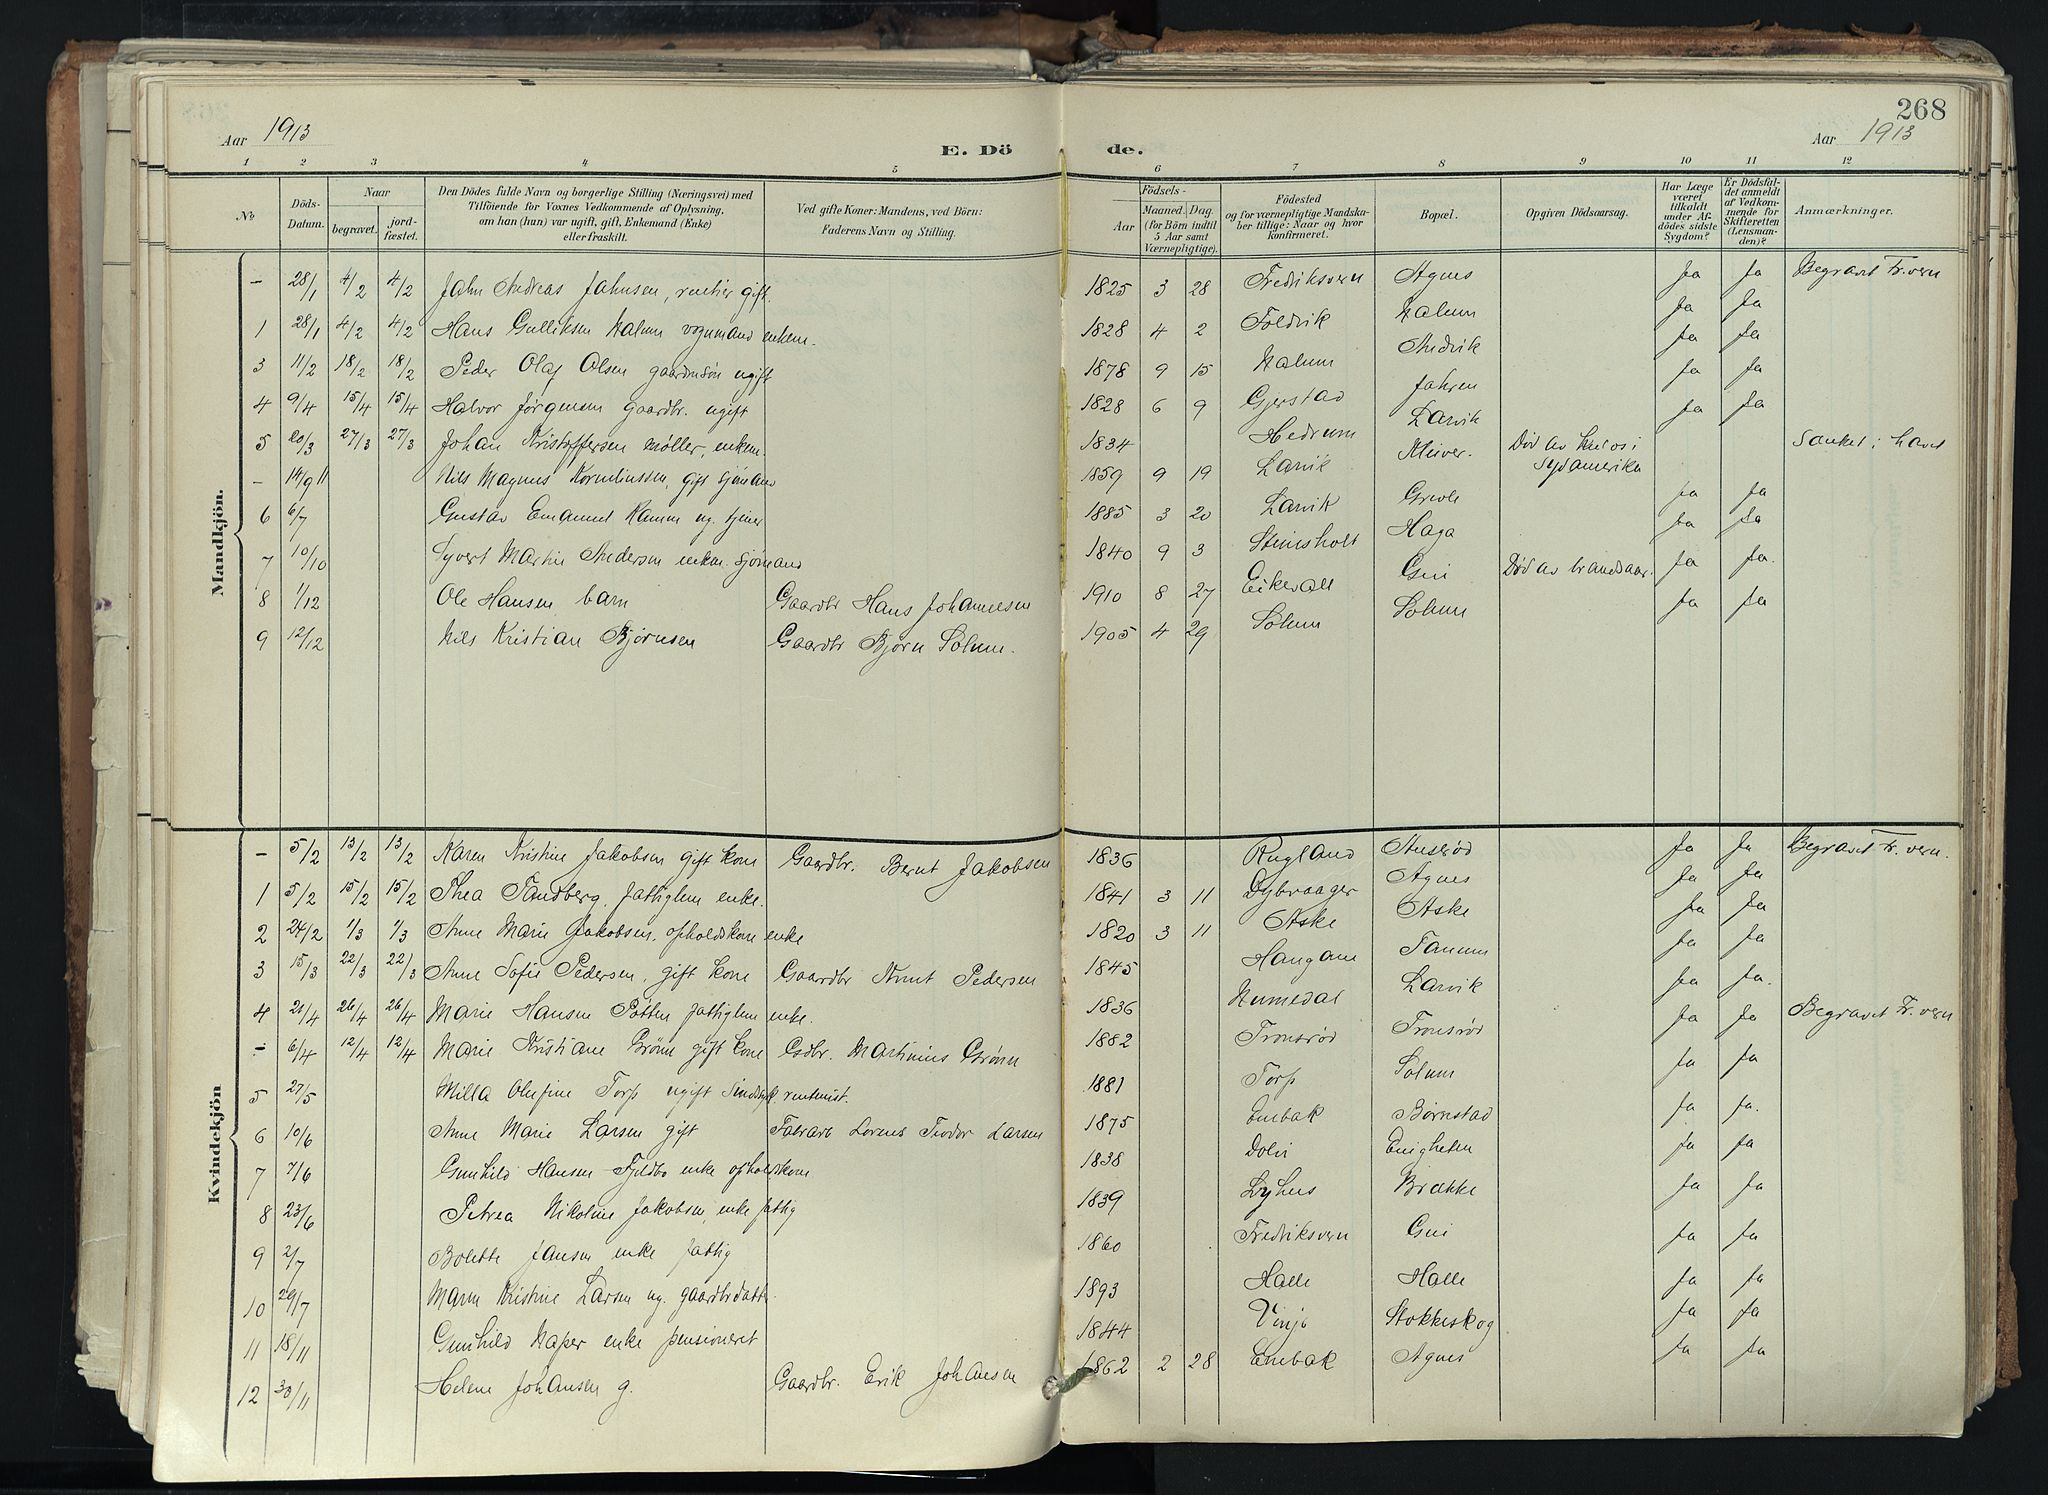 268
Aar 1913
E. Dö
de.
Aar 1913
1 2 3 4 5 6 7 8 9 10 11 12
№
Döds-Datum.
Naar
begravet.
jord-fæstet.
Den Dödes fulde Navn og borgerlige Stilling (Næringsvei) med
Tilföiende for Voxnes Vedkommende af Oplysning,
om han (hun) var ugift, gift, Enkemand (Enke)
eller fraskilt.
Ved gifte Koner: Mandens, ved Börn:
Faderens Navn og Stilling.
Födsels-
Aar
Maaned. Dag.
(for Börn indtil
5 Aar samt
Værnepligtige).
Födested
og for værnepligtige Mandska-
ber tillige: Naar og hvor
konfirmeret.
Bopæl.
Opgiven Dödsaarsag.
Har Læge
været
tilkaldt
under Af-
dödes sidste
Sygdom?
Er Dödsfal-
det anmeldt
af Vedkom-
mende for
Skifteretten
(Lensman-
den)?
Anmærkninger.
Mandkjön.
- 28/1 4/2 4/2 Jahn Andreas Jahnsen, rentier gift. 1825 3 28 Fredriksvern Agnes Ja Ja Begravet Fr.vern
1 28/1 4/2 4/2 Hans Gulliksen Halum vognmand enkem. 1828 4 2 Foldvik Halum Ja Ja
3 11/2 18/2 18/2 Peder Olaf Olsen gaardmsøn ugift 1878 9 15 Halum Andvik Ja Ja
4 9/4 15/4 15/4 Halvor Jørgensen gaardbr. ugift 1828 6 9 Gjerstad Jahren Ja Ja
5 20/3 27/3 27/3 Johan Kristoffersen møller, enkem. 1834 Hedrum Larvik Ja Ja
- 14/9 11 Nils Magnus Korneliussen, gift sjömand 1859 9 19 Larvik Død av
Sydamerika Sænket i havet
6 6/7 Gustav Emanuel Hamm ug. tjener 1885 3 20 Larvik Grevle Ja Ja
7 10/10 Syvert Martin Andersen enkm. sjömand 1840 9 3 Steinsholt Haga Ja Ja
8 1/12 Ole Hansen barn Gaardbr Hans Johannesen 1910 8 27 Eikevall Gui Død av brandsaar. Ja Ja.
9 12/12 Nils Kristian Bjørnsen Gaardbr Bjørn Solum. 1905 4 29 Solum Solum Ja Ja
Kvindekjön
- 5/2 13/2 13/2 Karen Kristine Jakobsen gift kone Gaardbr. Bernt Jakobsen 1836 Rugland Anvrød Ja Ja Begravet Fr.vern.
1 5/2 15/2 15/2 Thea Sandberg, fattiglem enke. 1841 3 11 Dybraager Agnes Ja Ja
2 24/2 1/3 1/3 Anne Marie Jakobsen. opholdskone enke 1820 3 11 Aske Aske Ja Ja
3 15/3 22/3 22/3 Anne Sofie Pedersen, gift kone Gaardbr Knut Pedersen 1845 Haugane Tanum Ja Ja
4 21/4 26/4 26/4 Marie Hansen Potten fattiglem enke. 1836 Numedal Larvik Ja Ja.
- 6/4 12/4 12/4 Marie Kristiane Grönn gift kone Gdbr. Martinius Grönn 1882 Tronsrød Tronsrød Ja Ja Begravet Fr.vern
5 27/5 Milla Olufine Torp ugift Sindssyk 1881 Torp Solum Ja Ja
6 10/6 Anne Marie Larsen gift Fabrarb Lorens Teodor Larsen 1875 Enebak Børnstad Ja Ja.
7 7/6 Gunhild Hansen Fjeldbo enke opholdskone 1838 Dolvi Enigheten Ja Ja
8 23/6 Petrea Nikoline Jakobsen, enke fattig 1839 Lyhus Brække Ja Ja
9 2/7 Bolette Jansen enke fattig 1860 Fredriksvern Gui Ja Ja
10 29/7 Maren Kristine Larsen ug. gaardbrdatter. 1893 Halle Halle Ja Ja
11 18/11 Gunhild Naper enke pensioneret 1844 Vinje Stokkeskog Ja Ja
12 30/11 Helene Johansen g. Gaardbr. Erik Johansen 1862 2 28 Enebak Agnes Ja Ja